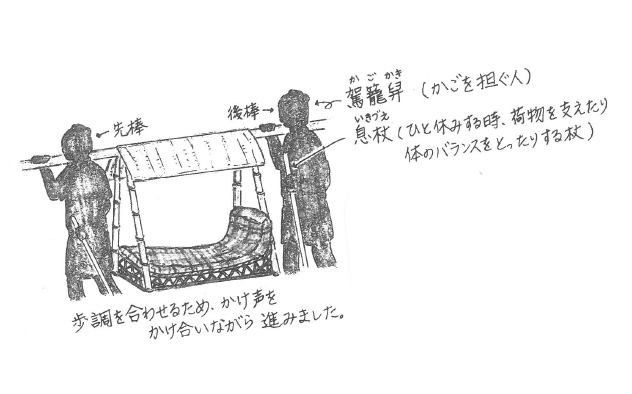 ←先棒
後棒→
かごかき
←駕籠舁 (かごを担ぐ人)
いきづえ
息杖(ひと休みする時、荷物を支えたり
体のバランスをとったりする杖)
歩調を合わせるため、かけ声を
かけ合いながら 進みました。